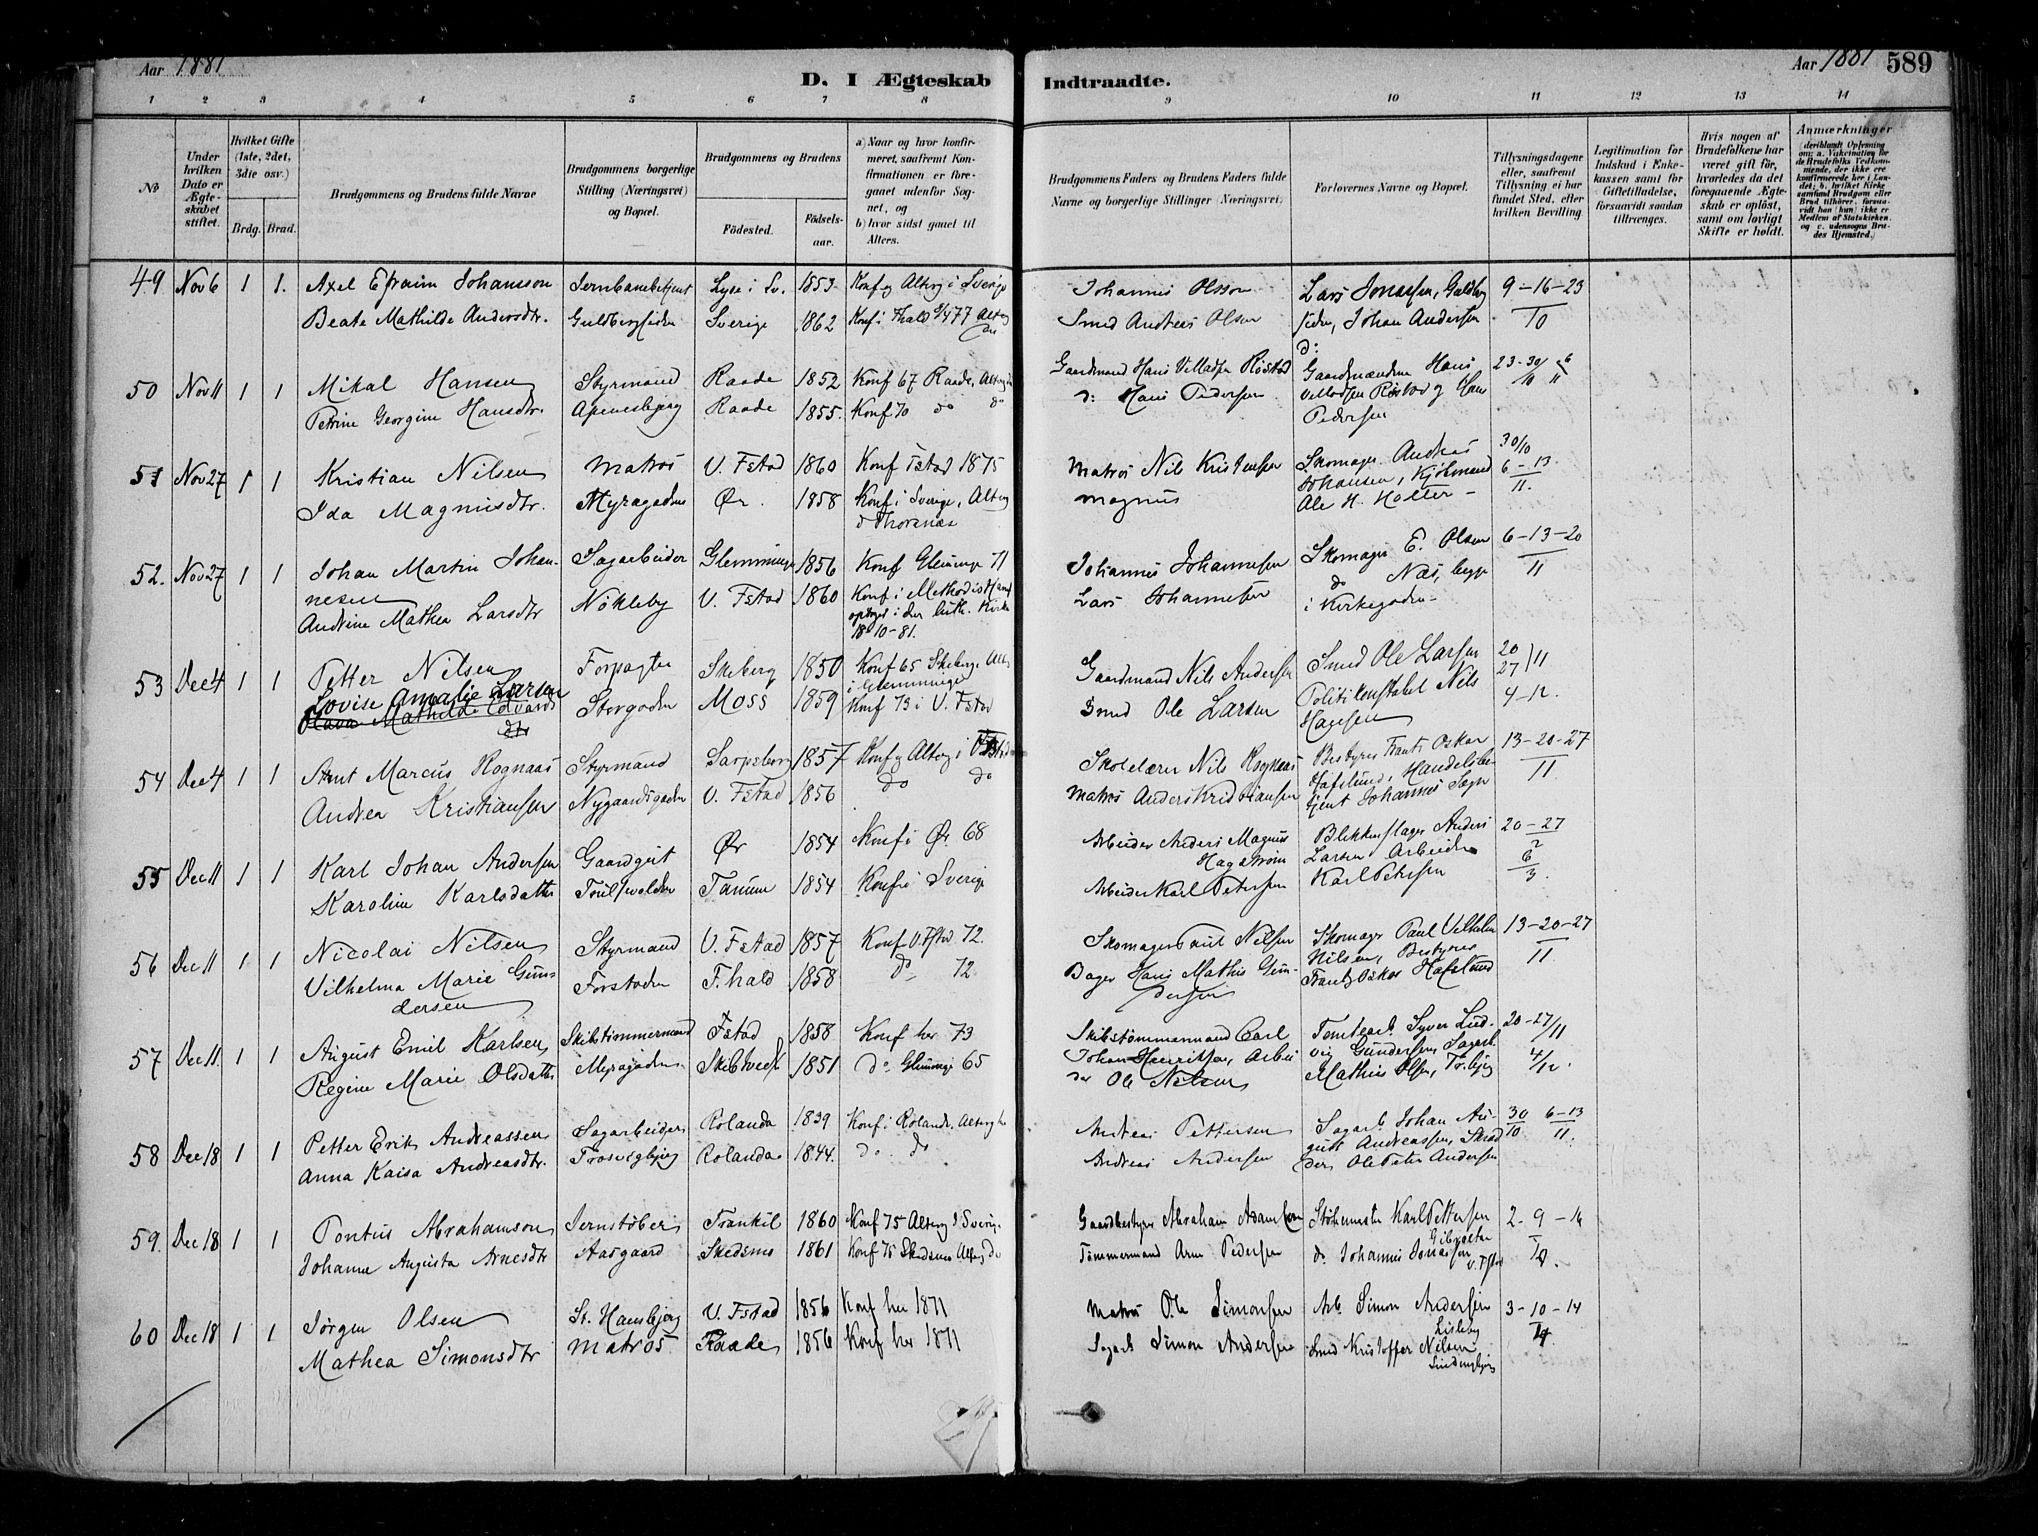 Aar 1881
D. I Ægteskab Indtraadte.
Aar 1881 589
1 2 3 4 5 6 7 8 9 10 11 12 13 14
No
Under hvilken Dato er Ægteskabet stiftet.
Hvilket Gifte (1ste, 2det, 3die osv.)
Brdg. Brud.
Brudgommens og Brudens fulde Navne
Brudgommens borgerlige Stilling (Næringsvei) og Bopæl.
Brudgommens og Brudens
Fødested. Fødselsaar.
a) Naar og hvor konfirmeret, saafremt Konfirmationen er foregaaet udenfor Sognet, og
b) hvor sidst gaaet til Alters.
Brudgommens Faders og Brudens Faders fulde Navne og borgerlige Stillinger (Næringsvei)
Forlovernes Navne og Bopæl.
Tillysningsdagene eller, saafremt Tillysning ei har fundet Sted, efter hvilken Bevilling.
Legitimation for Indskud i Enkekassen samt for Giftetilladelse, forsaavidt saadan tiltrænges.
Hvis nogen af Brudefolkene har været gift før, hvorledes da det foregaaende Ægteskab er opløst, samt om lovligt Skifte er holdt.
Anmærkninger
49 Nov 6 1 1. Axel Efraim Johansson Jernbanebetjent Lyse i Sv. 1853 Konf og Alterg i Sverige Johannis Olsson Lars Jonassen, Guldberg 9-16-23
Beate Mathilde Andersdtr. Guldbergsiden Sverige 1862 Smed Andreas Olsen siden, Johan Andersen 10
50 Nov 11 1 1 Mikal Hansen Styrmand Raade 1852 Konf 67 Raade, Gaardmand Hans Villadsen Røstad Gaardmændene Hans 23-30/10 6/11
Petrine Georgine Hansdtr. Apenesbjerg Raade 1855. Konf 70 do do d: Hans Pedersen Villadsen Røstad og Hans
Pedersen
51 Nov 27 1 1 Kristian Nilsen Matros V. Fstad 1860 Konf Fstad 1875 Matros Nils Kristensen Skomager Andreas 30/10
Ida Magnusdtr. Myragaden Ør. 1858 Konf i Sverige, Alterg Magnus Johansen, Kjøbmand 6-13
Thorsnæs Ole H. Holter - 11.
52. Nov 27 1 1 Johan Martin Johan- Sagarbeider Glemminge 1856 Konf Glemminge 71 Johannis Johannesen Skomager E. Olsen 6-13-20
nesen do Næs, begge 11
Andrine Mathea Larsdtr Nøkleby V. Fstad 1860 Konf i Methodist Lars Johannesen i Kirkegaden
optaget i der luth. Kirke
18-10-81.
53 Dec 4 1 1 Petter Nilsen Forpagter Skeberg 1850 Konf 65 Skeberg Gaardmand Nils Andersen Smed Ole Larsen 20
Lovise Amalie Larsen i Glemminge Politikonstabel Nils 27/11
Olava Mathilde Edvards Storgaden Moss 1859 Konf 73 i V. Fstad Smed Ole Larsen Hagesen 4-12
dtr
54 Dec 4 1 1 Arnt Marcus Rognaas Styrmand Sarpsborg 1857 Konf og Alterg i Skolelærer Nils Rognaas Bestyrer Frants Oskar 13-20-27
Andrea Kristiansen Nygaardsgaden V. Fstad 1856 do do Matros Anders Kristiansen Hafslund, Handelsbe- 11
tjent Johannes
55 Dec 11 1 1 Karl Johan Andersen Gaardgut Ør 1854 Konf i Ør 68 Arbeider Anders Magnus Blikkenslager Anders 20-27
Hagstrøm Larsen Arbeider
Karoline Karlsdatter Tanum 1854 Konf i Sverige Arbeider Karl Petersen Karl Petersen
56 Dec 11 1 1 Nicolai Nilsen Styrmand V. Fstad 1857 Konf V. Fstad 72. Skomager Nilsen Skomager Paul Vilhelm 13-20-27
Vilhelma Marie Gun- Forstaden F.hald 1858 do 72 Bager Hans Mathis Gun- Nilsen, Bestyrer 11
dersen dersen Frantz Oskar Hafslund
57 Dec 11. 1 1 August Emil Karlsen Skibstømmermand Fstad 1858 Konf her 73 Skibstømmermand Carl Tomtearb. Syver Lud- 20-27/11
Regine Marie Olsdatter Myragaden Skibtvedt 1851 do Glemminge 65 Johan Henriksen, Arbei vig Gundersen, Sagarb 4/12.
der Ole Nilsen Mathias Olsen,
58 Dec 18 1 1 Petter Erik Andreassen Sagarbeider Rolanda 1839 Konf i Rolanda, Alterg her Andreas Pettersen Sagarb Johan Au- 30/10 6-13/11.
Anna Kaisa Andreasdtr. Trosvigbjerg Rolanda 1844. do do Andreas Andersen gust Andreassen, Skræd
der Ole Peter Andersen
59. Dec 18 1 1 Pontus Abrahamson Jernstøber Frankil 1860 Konf 75 Alterg i Sverige Gaardbestyrer Abraham Adamsson Støbemester Karl Pettersen 2-9-16
Gibralter
Johanne Augusta Arnesdtr Aasgaard Skedsmo 1861 Konf 75 Skedsmo Alterg do Tømmermand Arne Pedersen do Johannes Jonassen 10.
V. Fstad
60 Dec 18 1 1 Jørgen Olsen St. Hansbjerg V. Fstad 1856 Konf her 1871 Matros Ole Simonsen Arb. Simon Andersen 3-10-14
Lisleby
Mathea Simonsdtr Matros Raade 1856 Konf her 1871 Sagarb Simon Andersen Smed Kristoffer Nilsen